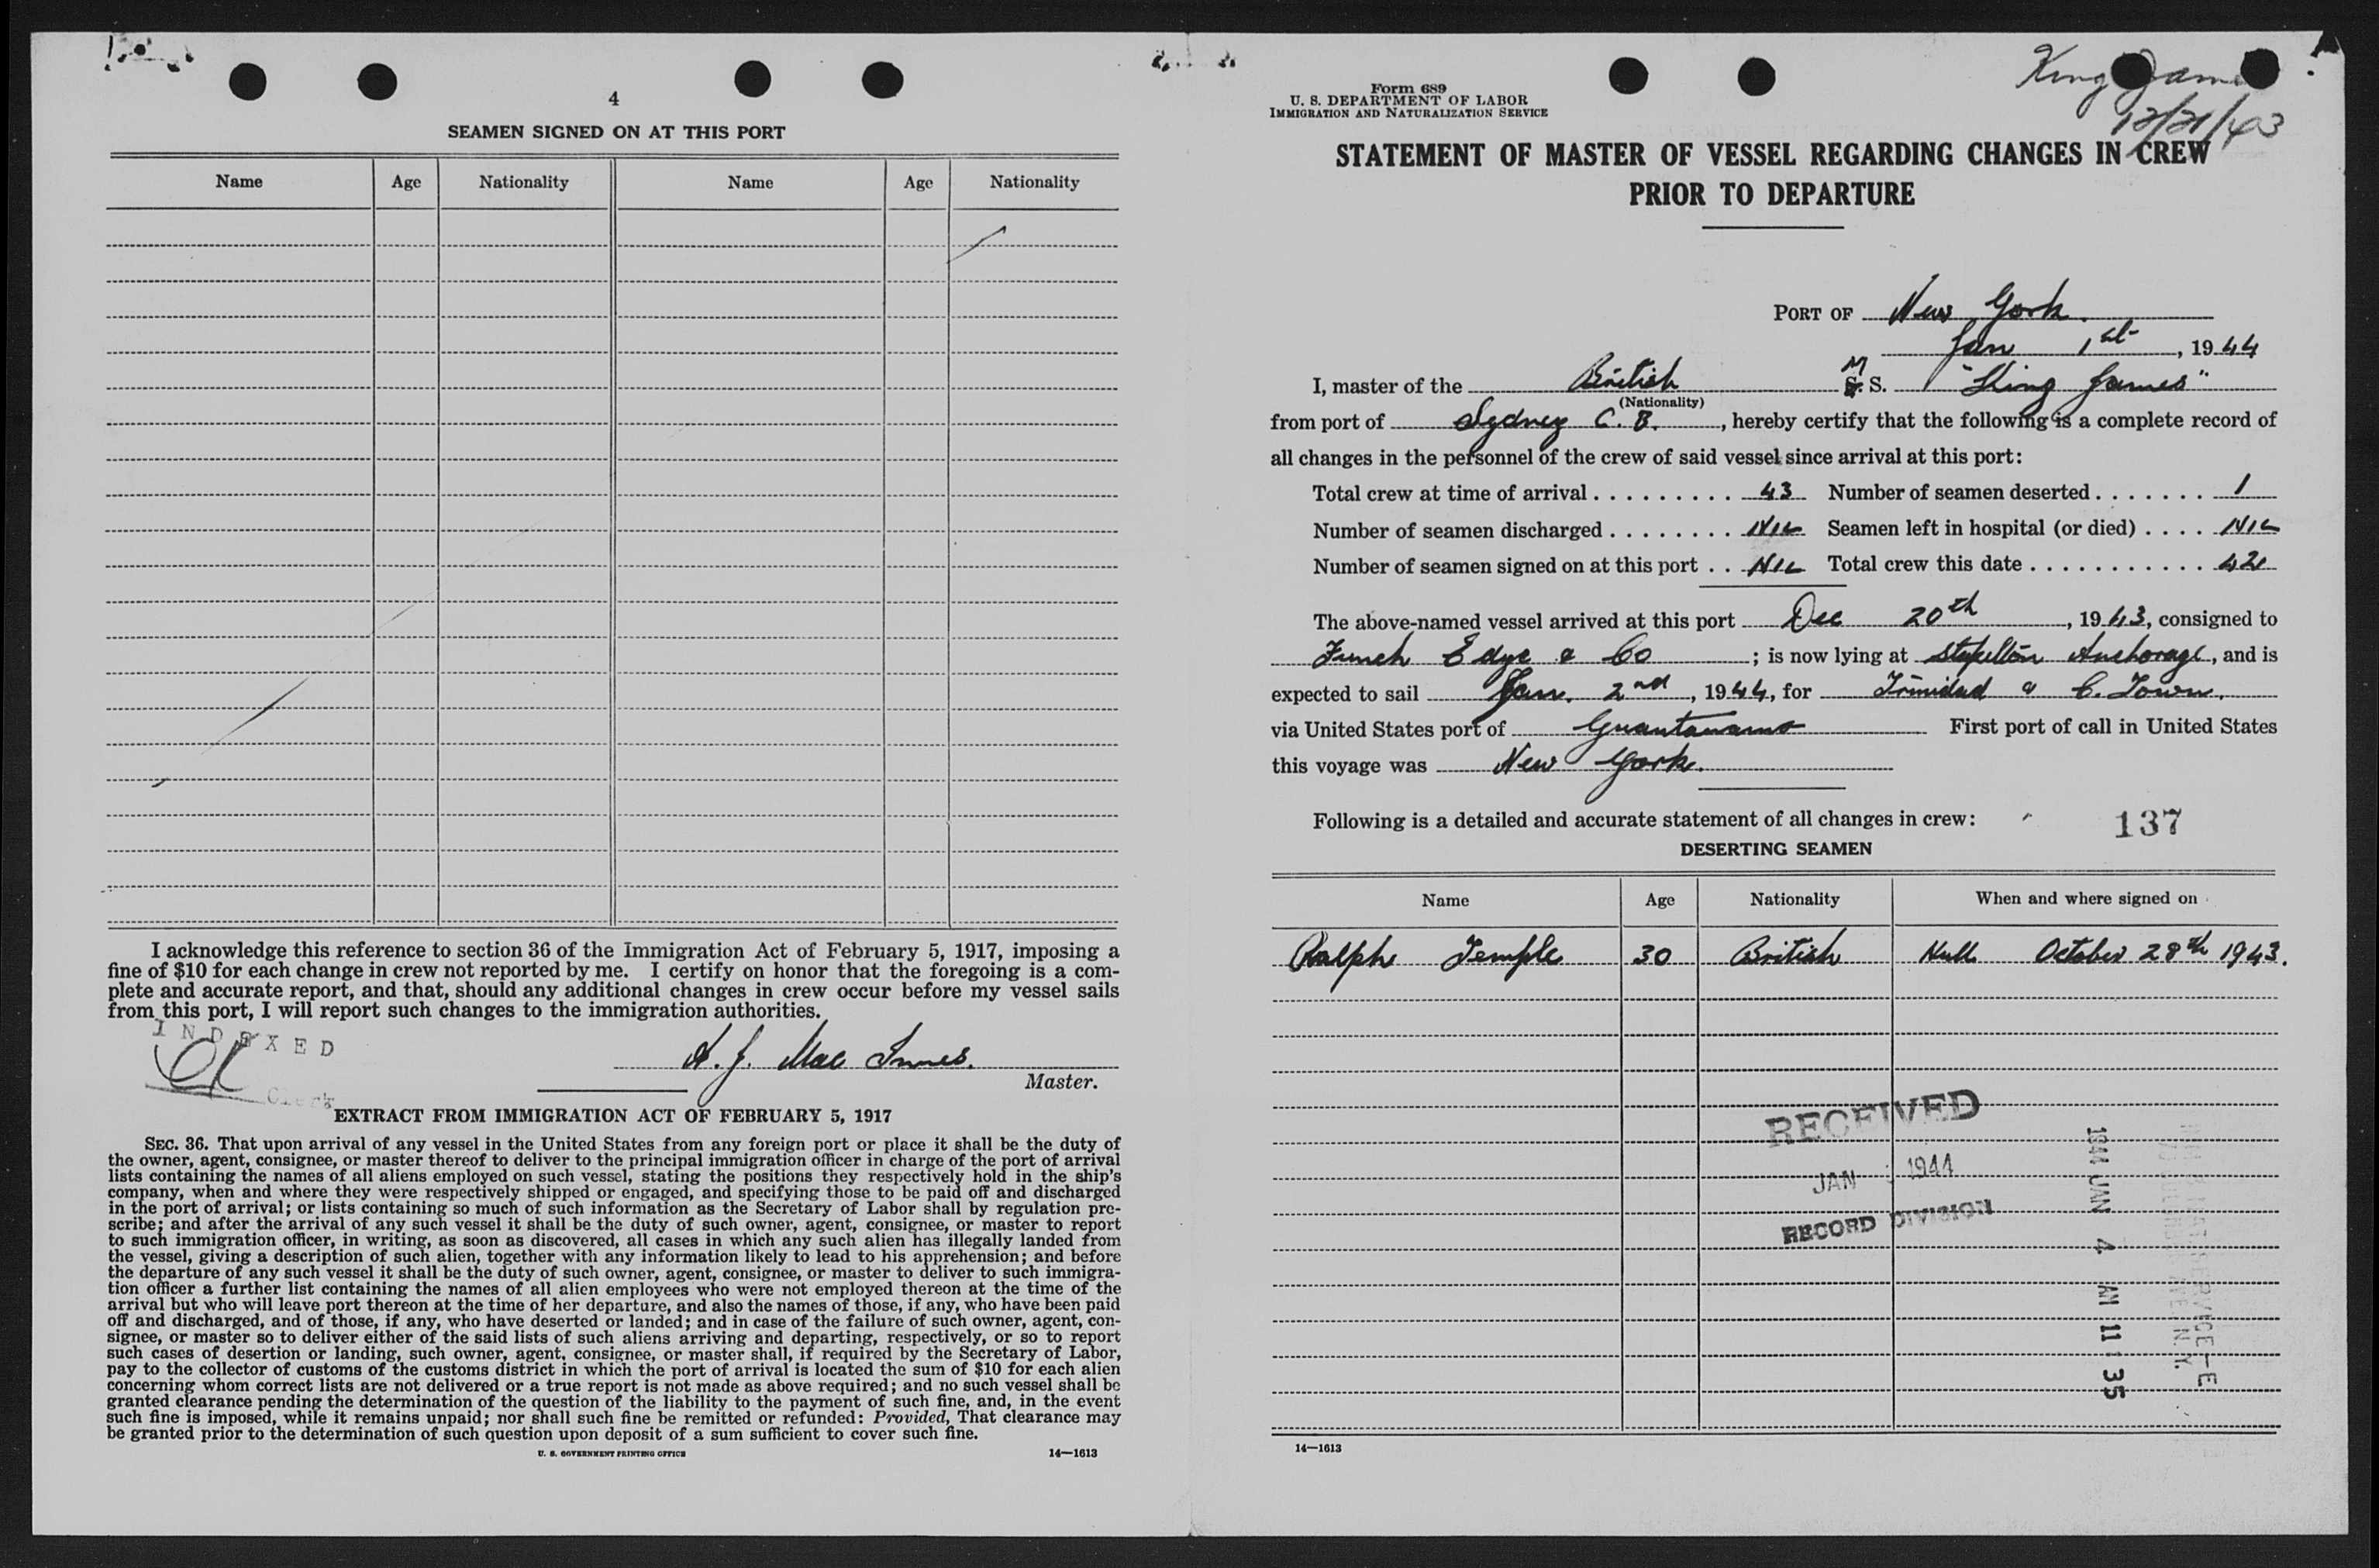 4
SEAMEN SIGNED ON AT THIS PORT
Name Age Nationality Name Age Nationality
I acknowledge this reference to section 36 of the Immigration Act of February 5, 1917, imposing a
fine of $10 for each change in crew not reported by me. I certify on honor that the foregoing is a com-
plete and accurate report, and that, should any additional changes in crew occur before my vessel sails
from this port, I will report such changes to the immigration authorities.
INDEXED
Clerk
A. J. Mac Innes.
Master.
EXTRACT FROM IMMIGRATION ACT OF FEBRUARY 5, 1917
SEC. 36. That upon arrival of any vessel in the United States from any foreign port or place it shall be the duty of
the owner, agent, consignee, or master thereof to deliver to the principal immigration officer in charge of the port of arrival
lists containing the names of all aliens employed on such vessel, stating the positions they respectively hold in the ship's
company, when and where they were respectively shipped or engaged, and specifying those to be paid off and discharged
in the port of arrival; or lists containing so much of such information as the Secretary of Labor shall by regulation pre-
scribe; and after the arrival of any such vessel it shall be the duty of such owner, agent, consignee, or master to report
to such immigration officer, in writing, as soon as discovered, all cases in which any such alien has illegally landed from
the vessel, giving a description of such alien, together with any information likely to lead to his apprehension; and before
the departure of any such vessel it shall be the duty of such owner, agent, consignee, or master to deliver to such immigra-
tion officer a further list containing the names of all alien employees who were not employed thereon at the time of the
arrival but who will leave port thereon at the time of her departure, and also the names of those, if any, who have been paid
off and discharged, and of those, if any, who have deserted or landed; and in case of the failure of such owner, agent, con-
signee, or master so to deliver either of the said lists of such aliens arriving and departing, respectively, or so to report
such cases of desertion or landing, such owner, agent, consignee, or master shall, if required by the Secretary of Labor,
pay to the collector of customs of the customs district in which the port of arrival is located the sum of $10 for each alien
concerning whom correct lists are not delivered or a true report is not made as above required; and no such vessel shall be
granted clearance pending the determination of the question of the liability to the payment of such fine, and, in the event
such fine is imposed, while it remains unpaid; nor shall such fine be remitted or refunded: Provided, That clearance may
be granted prior to the determination of such question upon deposit of a sum sufficient to cover such fine.
U. S. GOVERNMENT PRINTING OFFICE 14—1613
King James
12/21/43
Form 689
U. S. DEPARTMENT OF LABOR
IMMIGRATION AND NATURALIZATION SERVICE
STATEMENT OF MASTER OF VESSEL REGARDING CHANGES IN CREW
PRIOR TO DEPARTURE
PORT OF New York.
Jan 1st, 1944
I, master of the British M S. "King James"
(Nationality)
from port of Sydney C. B., hereby certify that the following is a complete record of
all changes in the personnel of the crew of said vessel since arrival at this port:
Total crew at time of arrival 43 Number of seamen deserted 1
Number of seamen discharged NIL Seamen left in hospital (or died) NIL
Number of seamen signed on at this port NIL Total crew this date 42
The above-named vessel arrived at this port Dec 20th, 1943, consigned to
Funch Edye & Co; is now lying at Stapelton Anchorage, and is
expected to sail Jan. 2nd, 1944, for Trinidad & C. Town.
via United States port of Guantanamo First port of call in United States
this voyage was New York.
Following is a detailed and accurate statement of all changes in crew:
137
DESERTING SEAMEN
Name Age Nationality When and where signed on
Ralph Temple 30 British Hull October 28th 1943.
RECEIVED
JAN 1944
RECORD DIVISION
1944 JAN 4 AM 11 35
14—1613